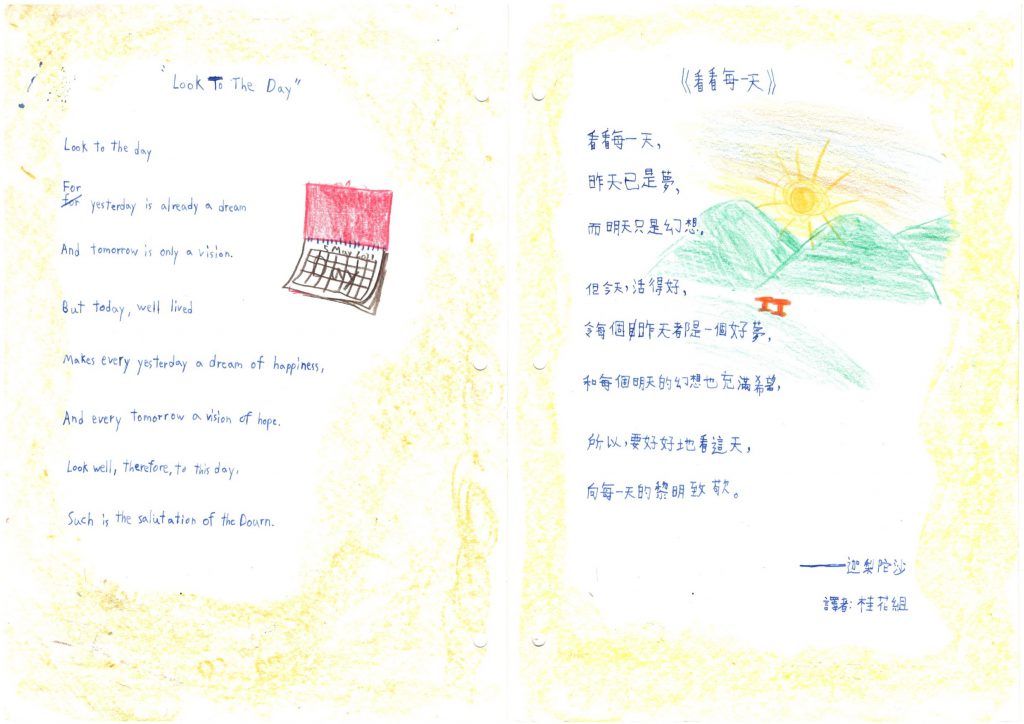 "Look To The Day"
Look to the day
For
for yesterday is already a dream
And tomorrow is only a vision.
But today, well lived
Makes every yesterday a dream of happiness,
And every tomorrow a vision of hope.
Look well, therefore, to this day,
Such is the salutation of the Dourn.
5 May 2021
DAY
《看看每一天》
看看每一天,
昨天已是夢,
而明天只是幻想,
但今天,活得好,
令每個昨天都是一個好夢,
和每個明天的幻想也充滿希望,
所以,要好好地看這天,
向每一天的黎明致敬。
——迦梨陀沙
譯者:桂花組